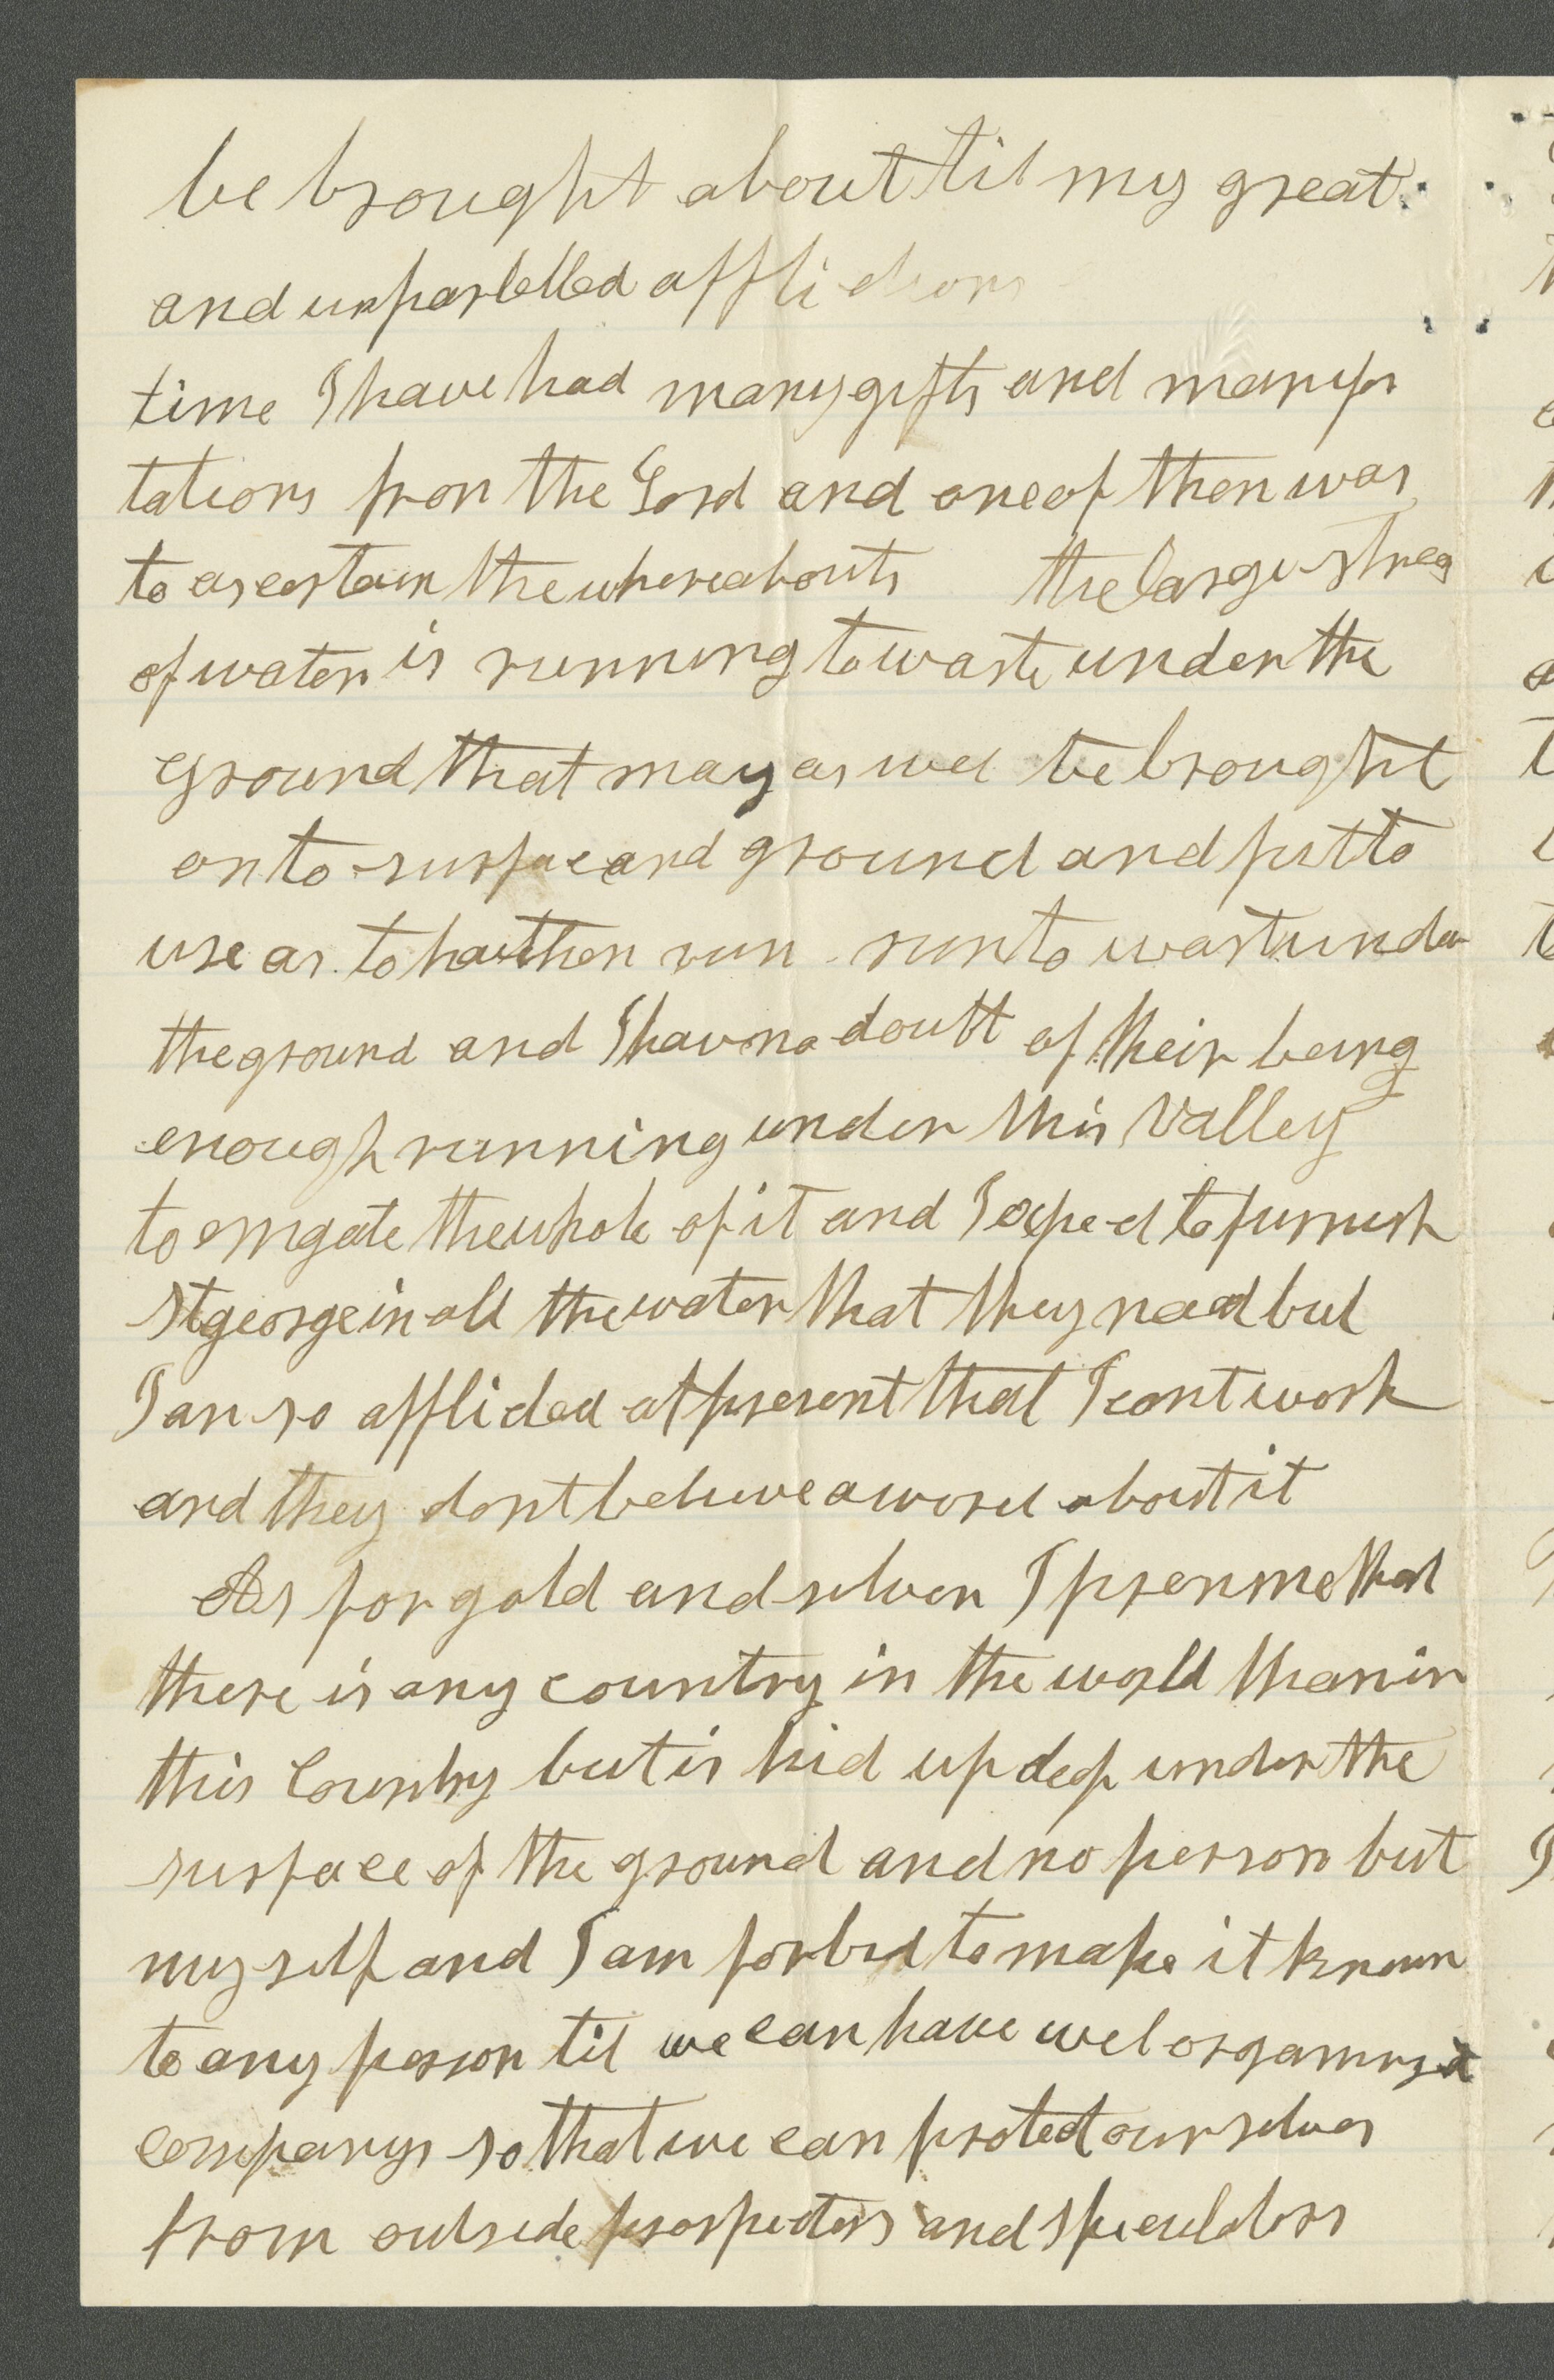 be brought about til my great
and unparlelled afflictions
time I have had many gifts and manifes
tations fron the Lord and one of then was
to ascertain the whereabouts the large streg
of water is running to waste under the
ground that may as wel be brought
onto surface and ground and put to
use as to have then run run to wast under
the ground and I hav no doubt of their being
enough running under this Valley
to errigate the whole of it and I expect to furnish
St george in all the water that they need but
I an so afflicted at present that I cont work
and they dont believe a word about it
As for gold and silver I presume that
there is any country in the world than in
this Country but is hid up deep under the
surface of the ground and no person but
my self and I am forbid to make it known
to any person til we can have wel organized
companys so that we can protect our selves
from outside prospectors and speculators